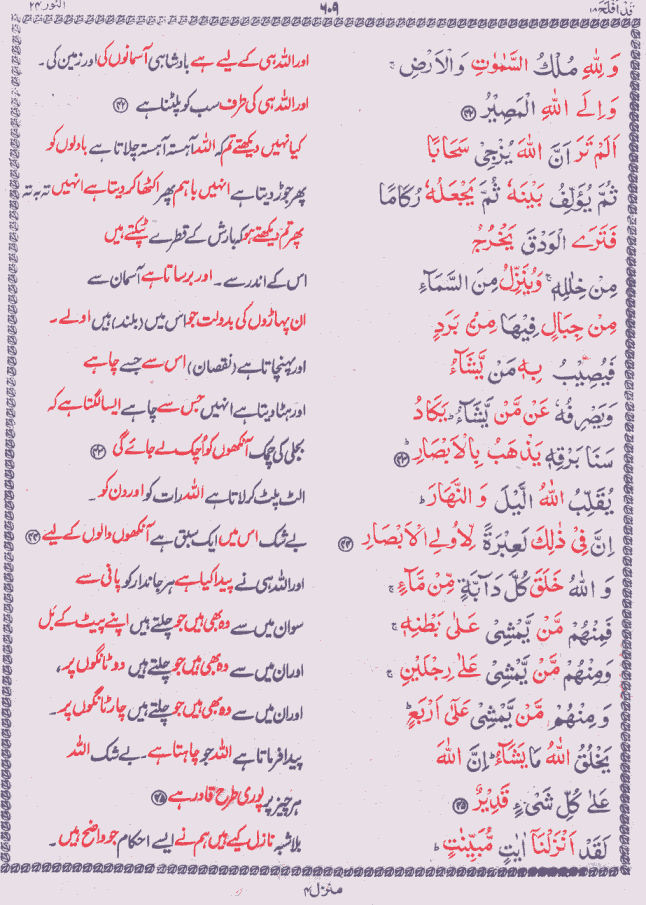 قد افلح ۱۸
۶۰۹
النور ۲۴
وَلِلّٰهِ مُلْكُ السَّمٰوٰتِ وَالْاَرْضِ ۚ
اور اللہ ہی کے لیے ہے بادشاہی آسمانوں کی اور زمین کی۔
وَاِلَى اللّٰهِ الْمَصِيْرُ ﴿۴۲﴾
اور اللہ ہی کی طرف سب کو پلٹنا ہے ﴿۴۲﴾
اَلَمْ تَرَ اَنَّ اللّٰهَ يُزْجِىْ سَحَابًا
کیا نہیں دیکھتے تم کہ اللہ آہستہ آہستہ چلاتا ہے بادلوں کو
ثُمَّ يُؤَلِّفُ بَيْنَهٗ ثُمَّ يَجْعَلُهٗ رُكَامًا
پھر جوڑ دیتا ہے انہیں باہم پھر اکٹھا کر دیتا ہے انہیں تہ بہ تہ
فَتَرَى الْوَدْقَ يَخْرُجُ
پھر تم دیکھتے ہو کہ بارش کے قطرے ٹپکتے ہیں
مِنْ خِلٰلِهٖ ۚ وَيُنَزِّلُ مِنَ السَّمَآءِ
اس کے اندر سے۔ اور برساتا ہے آسمان سے
مِنْ جِبَالٍ فِيْهَا مِنْۢ بَرَدٍ
ان پہاڑوں کی بدولت جو اس میں (بلند) ہیں اولے۔
فَيُصِيْبُ بِهٖ مَنْ يَّشَآءُ
اور پہنچاتا ہے (نقصان) اس سے جسے چاہے
وَيَصْرِفُهٗ عَنْ مَّنْ يَّشَآءُ ؕ يَكَادُ
اور ہٹا دیتا ہے انہیں جس سے چاہے ایسا لگتا ہے کہ
سَنَا بَرْقِهٖ يَذْهَبُ بِالْاَبْصَارِ ؕ ﴿۴۳﴾
بجلی کی چمک آنکھوں کو اُچک لے جائے گی ﴿۴۳﴾
يُقَلِّبُ اللّٰهُ الَّيْلَ وَالنَّهَارَ ؕ
الٹ پلٹ کر لاتا ہے اللہ رات کو اور دن کو۔
اِنَّ فِىْ ذٰلِكَ لَعِبْرَةً لِّاُولِى الْاَبْصَارِ ﴿۴۴﴾
بے شک اس میں ایک سبق ہے آنکھوں والوں کے لیے ﴿۴۴﴾
وَاللّٰهُ خَلَقَ كُلَّ دَآبَّةٍ مِّنْ مَّآءٍ ۚ
اور اللہ ہی نے پیدا کیا ہے ہر جاندار کو پانی سے
فَمِنْهُمْ مَّنْ يَّمْشِىْ عَلٰى بَطْنِهٖ ۚ
سو ان میں سے وہ بھی ہیں جو چلتے ہیں اپنے پیٹ کے بَل
وَمِنْهُمْ مَّنْ يَّمْشِىْ عَلٰى رِجْلَيْنِ ۚ
اور ان میں سے وہ بھی ہیں جو چلتے ہیں دو ٹانگوں پر،
وَمِنْهُمْ مَّنْ يَّمْشِىْ عَلٰٓى اَرْبَعٍ ؕ
اور ان میں سے وہ بھی ہیں جو چلتے ہیں چار ٹانگوں پر۔
يَخْلُقُ اللّٰهُ مَا يَشَآءُ ؕ اِنَّ اللّٰهَ
پیدا فرماتا ہے اللہ جو چاہتا ہے۔ بے شک اللہ
عَلٰى كُلِّ شَىْءٍ قَدِيْرٌ ﴿۴۵﴾
ہر چیز پر پوری طرح قادر ہے ﴿۴۵﴾
لَقَدْ اَنْزَلْنَآ اٰيٰتٍ مُّبَيِّنٰتٍ ؕ
بلاشبہ نازل کیے ہیں ہم نے ایسے احکام جو واضح ہیں۔
منزل ۴